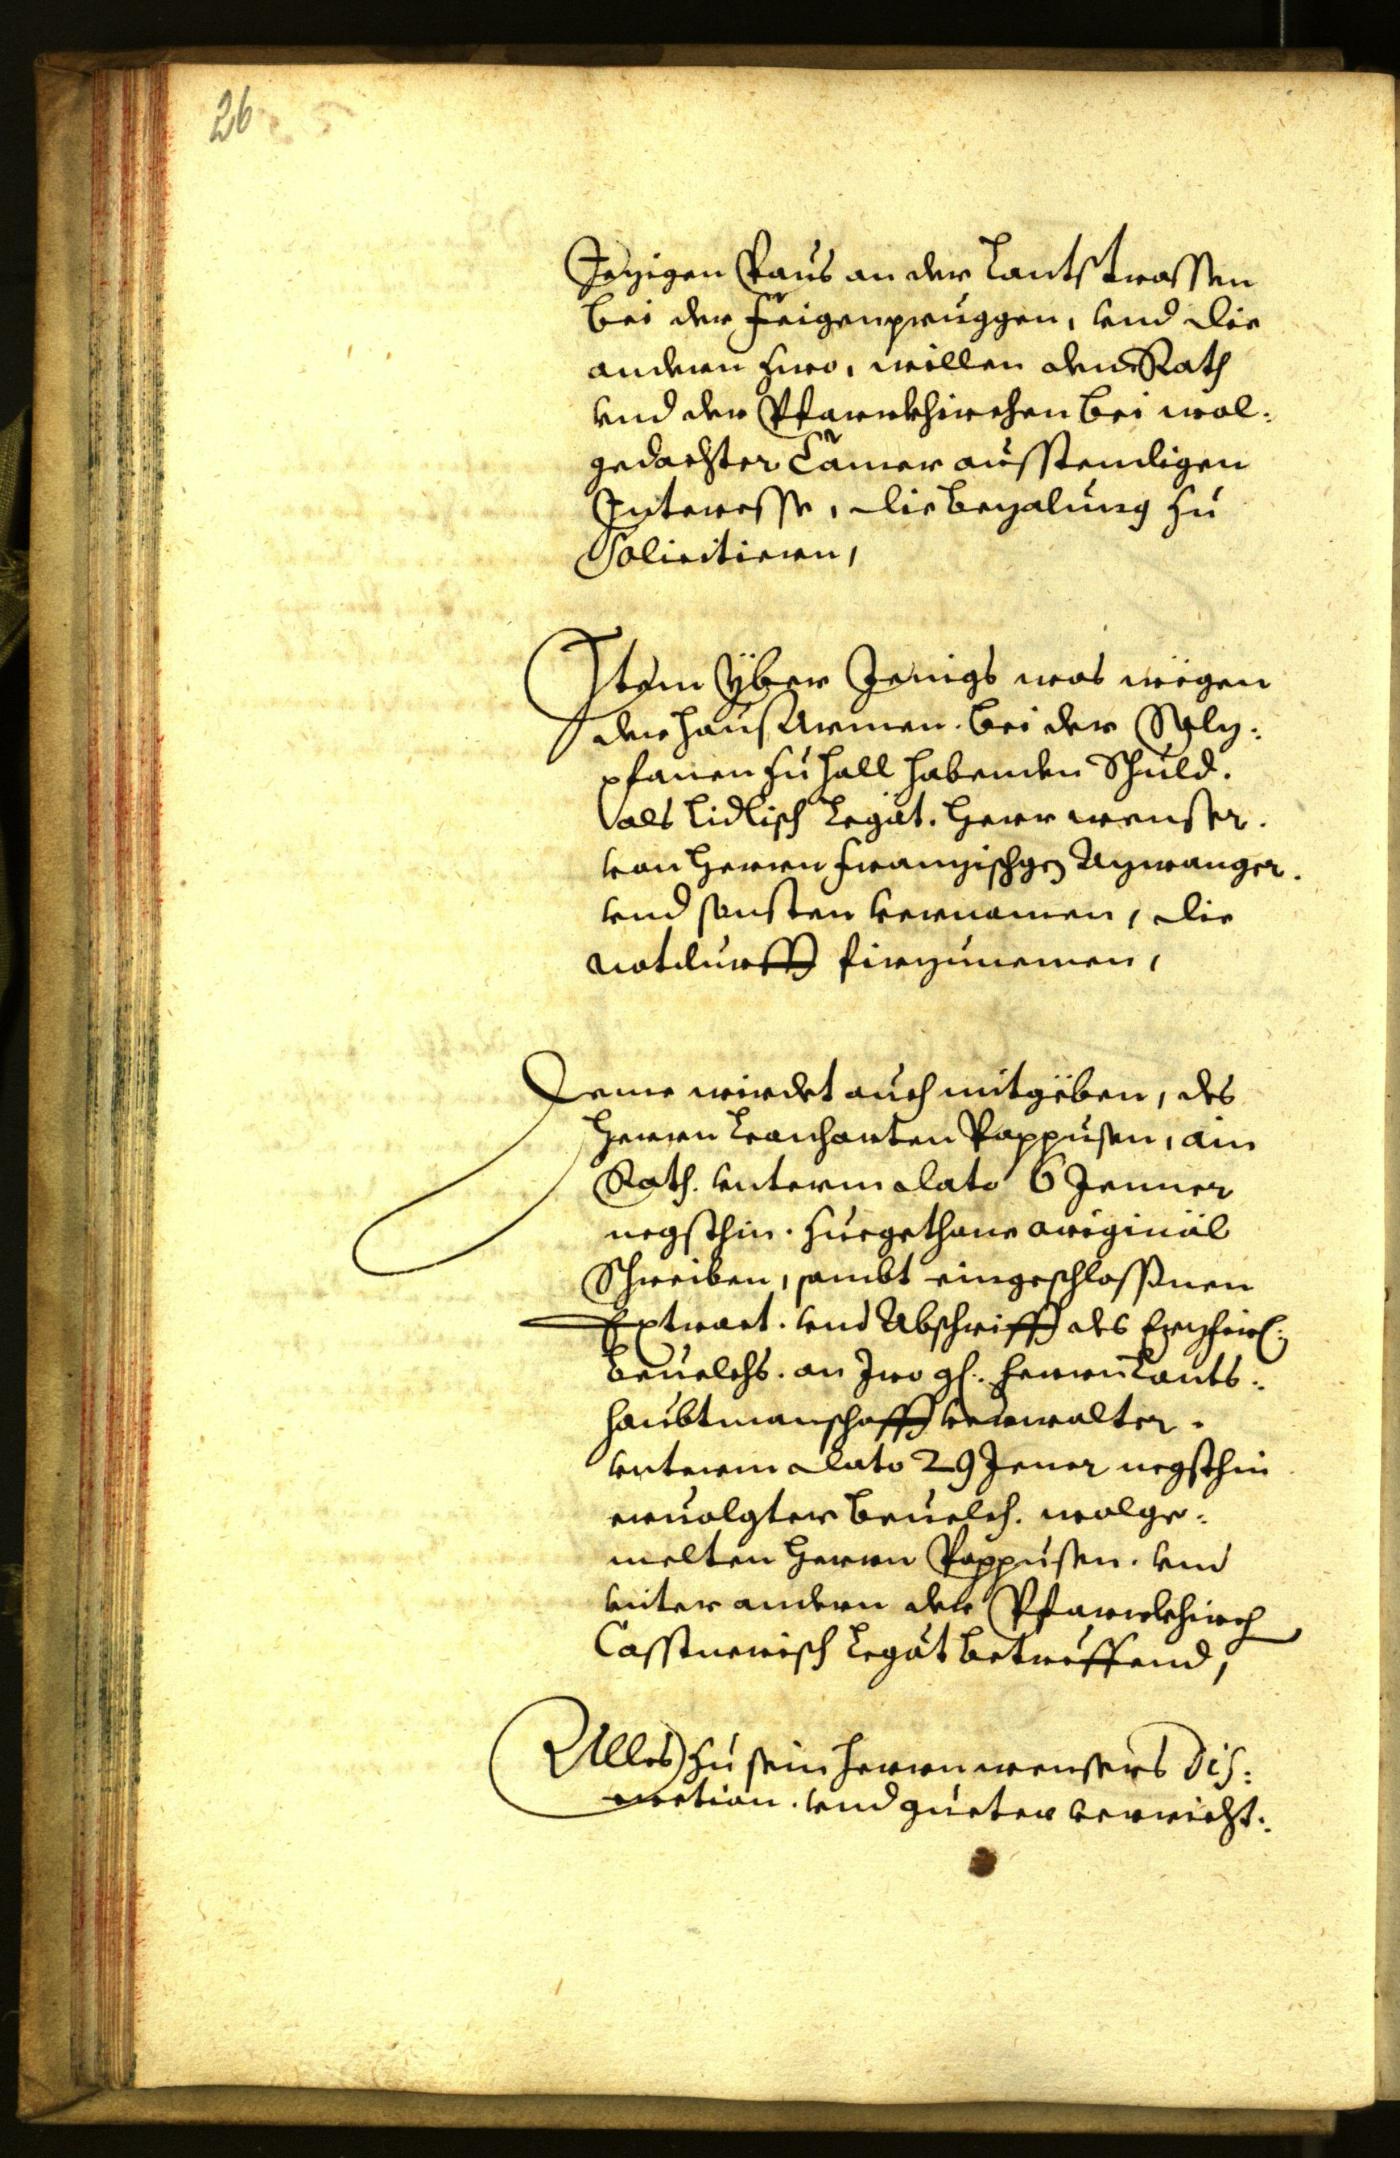 26
Jezigen Paus an der Lantstrassen
bei der Feigenpruggen, vnd die
anderen zwo, willen dem Rath
vnd der Pfarrkhirchen bei wol:
gedachter Camer ausstendigen
Interesse, die bezalung zu
Solicitieren,
Item yber Jenigs was wegen
der hausArmen bei der Salz:
pfannen zu Hall habenden Schuld.
als Lidlisch Legat. Herr wenser.
von Herrn Franzischgen Azwanger.
vnd sonsten vernomen, die
notdurfft fürzunemen,
Deme wirdet auch mitgeben, des
Herrn Leonharten Pappusen, ain
Rath. vnterm dato 6 Jenner
negsthin. zuegethane original
Schreiben, sambt eingeschlossnen
Extract. vnd Abschrifft des Erzfürl:
beuelchs. an Iro gl. herrn Lants:
haubtmanschafft verwalter.
vnterm dato 29 Jener negsthin
eruolgter beuelch. wolge:
melten Herrn Pappusen. vnd
vnter andern der Pfarrkhirch
Casstnerisch Legat betreffend,
Alles zu sein herrn wensers Dis:
cretion. vnd gueter verricht: